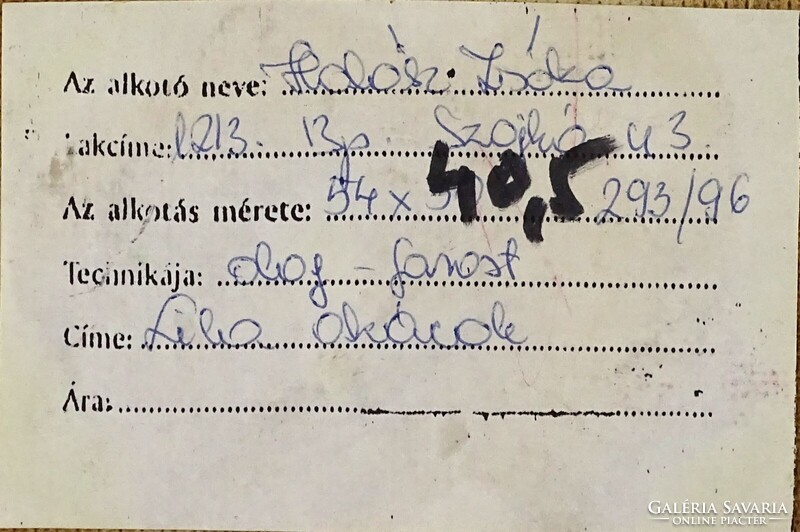 Az alkotó neve: Halász Izóka
Lakcíme: 1213. Bp. Szajkó u 3.
Az alkotás mérete: 54 x 40,5 293/96
Technikája: olaj - farost
Címe: Lila akácok
Ára:
GALÉRIA SAVARIA
ONLINE PIACTÉR